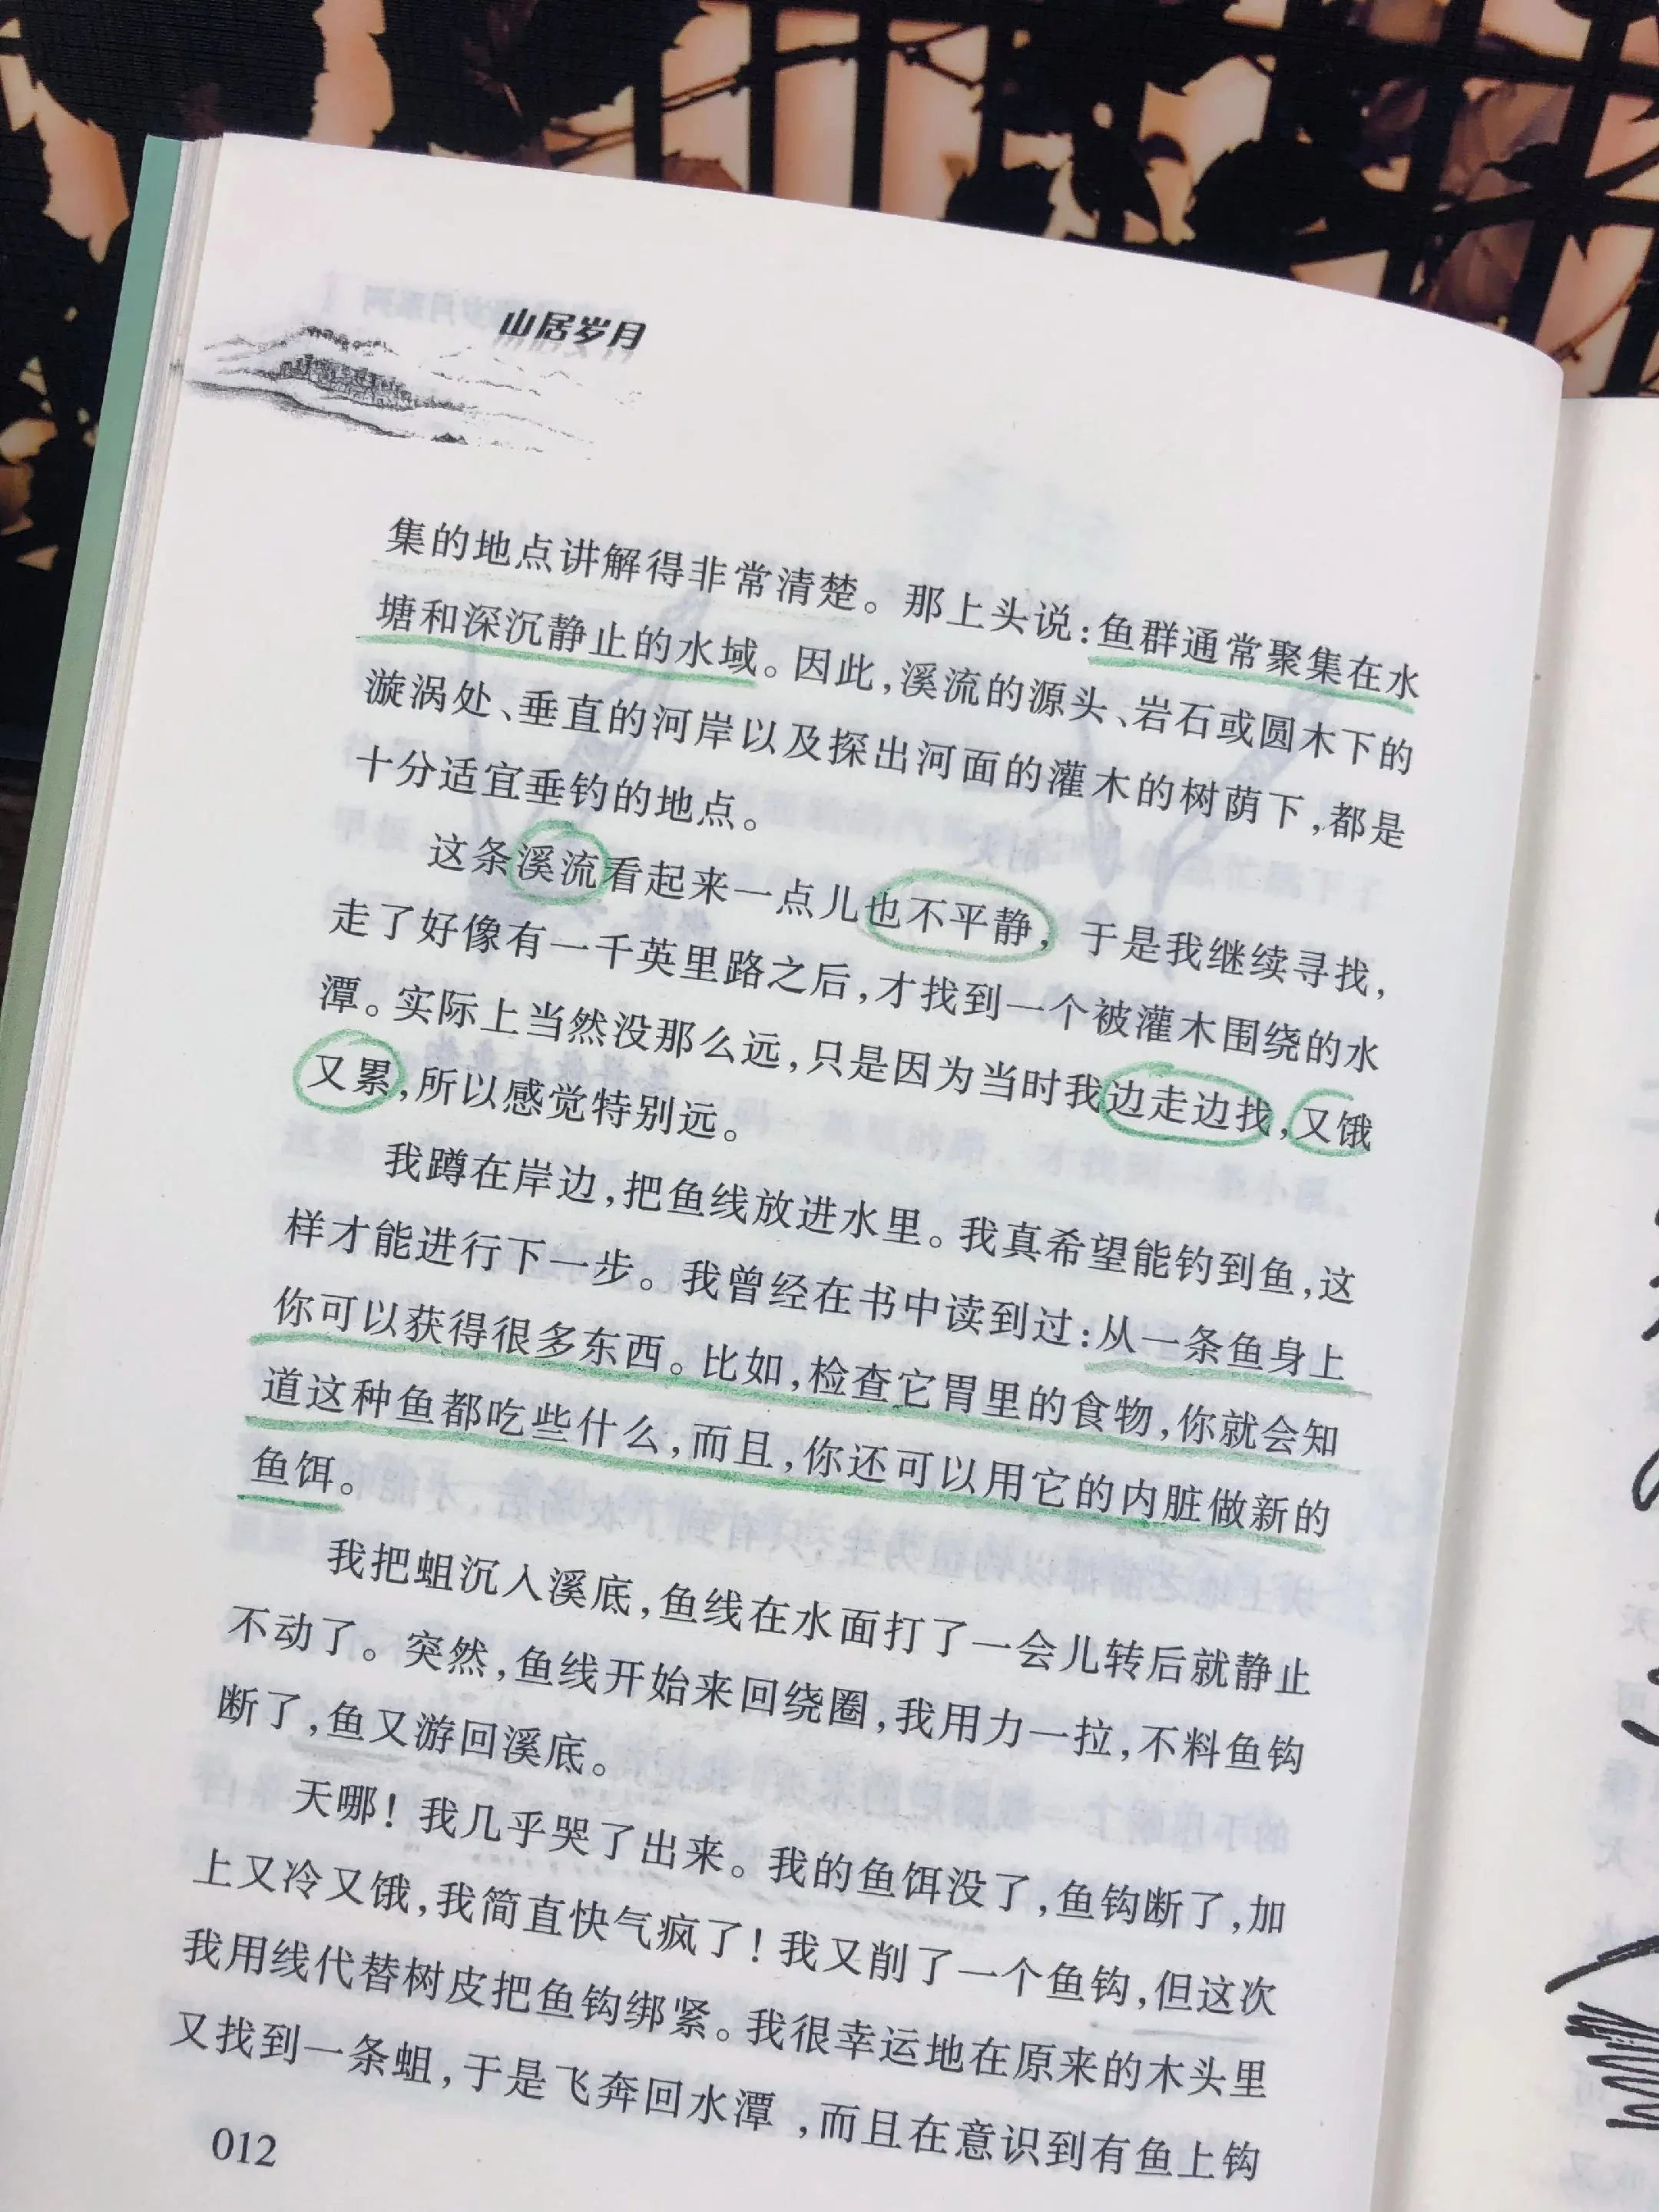 山居岁月
集的地点讲解得非常清楚。那上头说:鱼群通常聚集在水
塘和深沉静止的水域。因此,溪流的源头、岩石或圆木下的
漩涡处、垂直的河岸以及探出河面的灌木的树荫下,都是
十分适宜垂钓的地点。
这条溪流看起来一点儿也不平静,于是我继续寻找,
走了好像有一千英里路之后,才找到一个被灌木围绕的水
潭。实际上当然没那么远,只是因为当时我边走边找,又饿
又累,所以感觉特别远。
我蹲在岸边,把鱼线放进水里。我真希望能钓到鱼,这
样才能进行下一步。我曾经在书中读到过:从一条鱼身上
你可以获得很多东西。比如,检查它胃里的食物,你就会知
道这种鱼都吃些什么,而且,你还可以用它的内脏做新的
鱼饵。
我把蛆沉入溪底,鱼线在水面打了一会儿转后就静止
不动了。突然,鱼线开始来回绕圈,我用力一拉,不料鱼钩
断了,鱼又游回溪底。
天哪!我几乎哭了出来。我的鱼饵没了,鱼钩断了,加
上又冷又饿,我简直快气疯了!我又削了一个鱼钩,但这次
我用线代替树皮把鱼钩绑紧。我很幸运地在原来的木头里
又找到一条蛆,于是飞奔回水潭,而且在意识到有鱼上钩
012